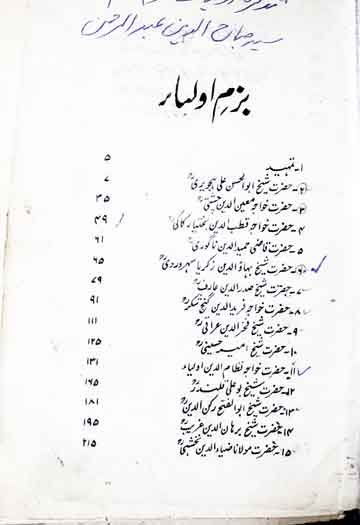 تذکرہ
سید صباح الدین عبدالرحمن
بزم اولیاء
۱۔ تمہید ۵
۲۔ حضرت شیخ ابوالحسن علی ہجویریؒ ۷
۳۔ حضرت خواجہ معین الدین چشتیؒ ۳۵
۴۔ حضرت خواجہ قطب الدین بختیار کاکیؒ ۴۹
۵۔ حضرت قاضی حمید الدین ناگوریؒ ۶۱
۶۔ حضرت شیخ بہاؤ الدین زکریا سہروردیؒ ۶۵
۷۔ حضرت شیخ صدر الدین عارفؒ ۷۹
۸۔ حضرت خواجہ فرید الدین گنج شکرؒ ۹۱
۹۔ حضرت شیخ فخر الدین عراقیؒ ۱۱۱
۱۰۔ حضرت شیخ امیر حسینیؒ ۱۲۵
۱۱۔ حضرت خواجہ نظام الدین اولیاء ۱۳۱
۱۲۔ حضرت شیخ بو علی قلندرؒ ۱۶۵
۱۳۔ حضرت شیخ ابوالفتح رکن الدینؒ ۱۸۱
۱۴۔ حضرت شیخ برہان الدین غریبؒ ۱۹۵
۱۵۔ حضرت مولانا ضیاء الدین نخشبیؒ ۲۱۵